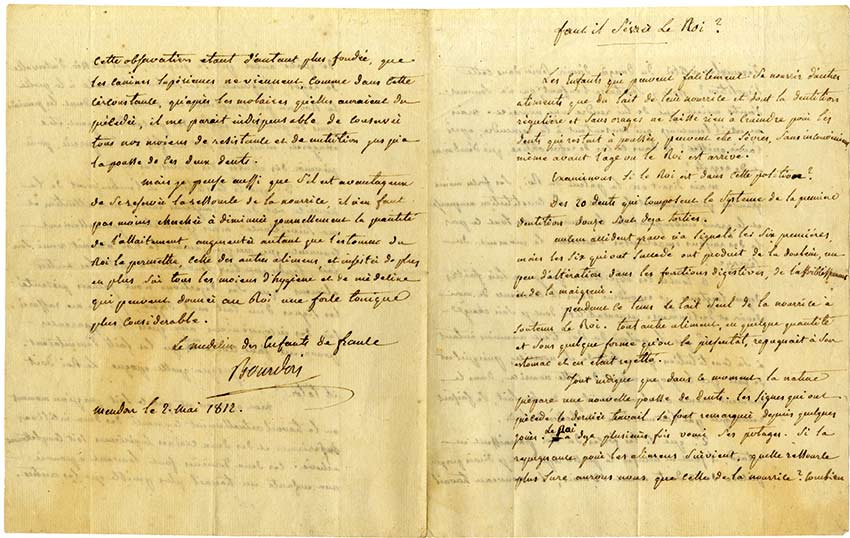 Cette observation etant d'autant plus fondée, que
les canines supérieures ne viennent, comme dans cette
circonstance, qu'après les molaires qu'elles auraient du
précéder, il me parait indispensable de conserver
tous nos moiens de resistance et de nutrition jusqu'a
la pousse de ces deux dents.
mais je pense aussi que s'il est avantageux
de se réserver la ressource de la nourrice, il n'en faut
pas moins chercher à diminuer journellement la quantité
de l'allaitement, augmenter autant que l'estomac du
Roi le permettra celle des autres alimens, et insister de plus
en plus sur tous les moiens d'hygiene et de médecine
qui peuvent donner au Roi une force tonique
plus considerable.
Le medecin des Enfants de france
Bourdois
meudon le 2. mai 1812.
faut il sévrer le Roi ?
Les Enfants qui peuvent facilement se nourrir d'autres
aliments que du lait de leur nourrice et dont la dentition
régulière et sans orages ne laisse rien à craindre pour les
dents qui restent à pousser, peuvent être sévrés, sans inconvénient
même avant l'age ou le Roi est arrivé.
Examinons si le Roi est dans cette position ?
Des 20 dents qui composent le systeme de la premiere
dentition douze sont deja sorties.
aucun accident grave n'a signalé les six premieres,
mais les six qui ont succedé ont produit de la douleur, un
peu d'altération dans les fonctions digestives, de l'affoiblissement
et de la maigreur.
pendant ce tems le lait seul de la nourrice à
soutenu le Roi. tout autre aliment, en quelque quantité
et sous quelque forme qu'on le presentat, repugnait à son
estomac et en etait rejetté.
Tout indique que dans ce moment la nature
prépare une nouvelle pousse de dents. Les signes qui ont
précédé le dernier travail se font remarquer depuis quelques
jours. Le Roi a deja plusieurs fois vomi ses potages. Si la
repugnance pour les alimens survient, quelle ressource
plus sure aurons nous que celle de la nourrice ? Combien